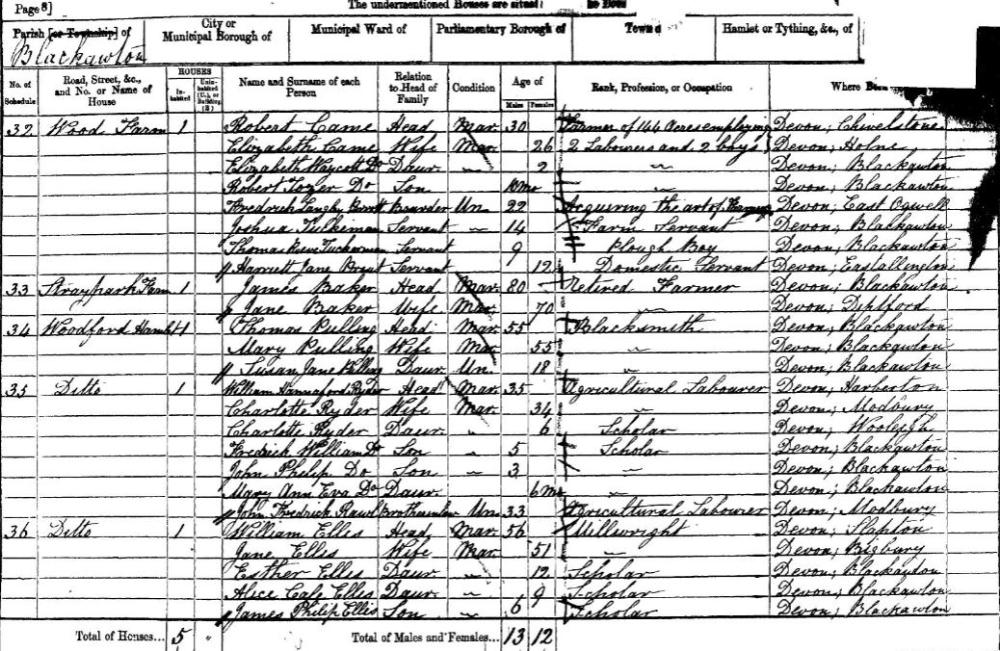 Page 8] The undermentioned Houses are situate
Parish [or Township] of City or Municipal Borough of Municipal Ward of Parliamentary Borough of Town of Hamlet or Tything, &c., of
Blackawton
No. of Schedule Road, Street, &c., and No. or Name of House HOUSES Inhabited Uninhabited (U.), or Building (B.) Name and Surname of each Person Relation to Head of Family Condition Age of Males Females Rank, Profession, or Occupation Where Born
32 Wood Farm 1 Robert Came Head Mar. 30 Farmer of 144 Acres employing Devon; Chivelstone
Elizabeth Came Wife Mar. 26 2 Labourers and 2 boys Devon; Holne
Elizabeth Waycott Do Daur. 2 " Devon; Blackawton
Robert Tozer Do Son mo " Devon; Blackawton
Fredrick Boarder Un. 22 Acquiring the art of Farming Devon; East Ogwell
Joshua Tuckerman Servant " 14 Farm Servant Devon; Blackawton
Thomas Tuckerman Servant 9 Plough Boy Devon; Blackawton
Harriett Jane Servant 12 Domestic Servant Devon; Eastallington
33 Straypark Farm 1 James Baker Head Mar. 80 Retired Farmer Devon; Blackawton
Jane Baker Wife Mar. 70 " Devon;
34 Woodford Hamlet 1 Thomas Pulling Head Mar. 55 Blacksmith Devon; Blackawton
Mary Pulling Wife Mar. 55 " Devon; Blackawton
Susan Jane Pulling Daur. Un. 18 " Devon; Blackawton
35 Ditto 1 William Hannaford Ryder Head Mar. 35 Agricultural Labourer Devon; Harberton
Charlotte Ryder Wife Mar. 34 " Devon; Modbury
Charlotte Ryder Daur. " 6 Scholar Devon; Wooleigh
Fredrick William Do Son " 5 Scholar Devon; Blackawton
John Philip Do Son " 3 " Devon; Blackawton
Mary Ann Eva Do Daur. 6 mo " Devon; Blackawton
John Fredrick Rawl Brotherinlaw Un. 33 Agricultural Labourer Devon; Modbury
36 Ditto 1 William Elles Head Mar. 56 Millwright Devon; Slapton
Jane Elles Wife Mar. 51 " Devon; Bigbury
Esther Elles Daur. " 12 Scholar Devon; Blackawton
Alice Elles Daur. " 9 Scholar Devon; Blackawton
James Philip Ellis Son " 6 Scholar Devon; Blackawton
Total of Houses... 5 " Total of Males and Females... 13 12